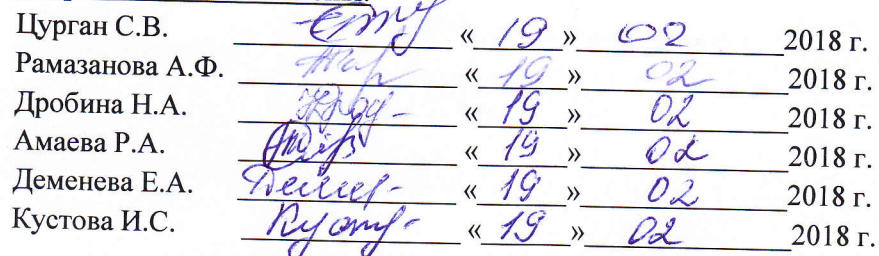 Цурган С.В. «19» 02 2018 г.
Рамазанова А.Ф. «19» 02 2018 г.
Дробина Н.А. «19» 02 2018 г.
Амаева Р.А. «19» 02 2018 г.
Деменева Е.А. «19» 02 2018 г.
Кустова И.С. «19» 02 2018 г.